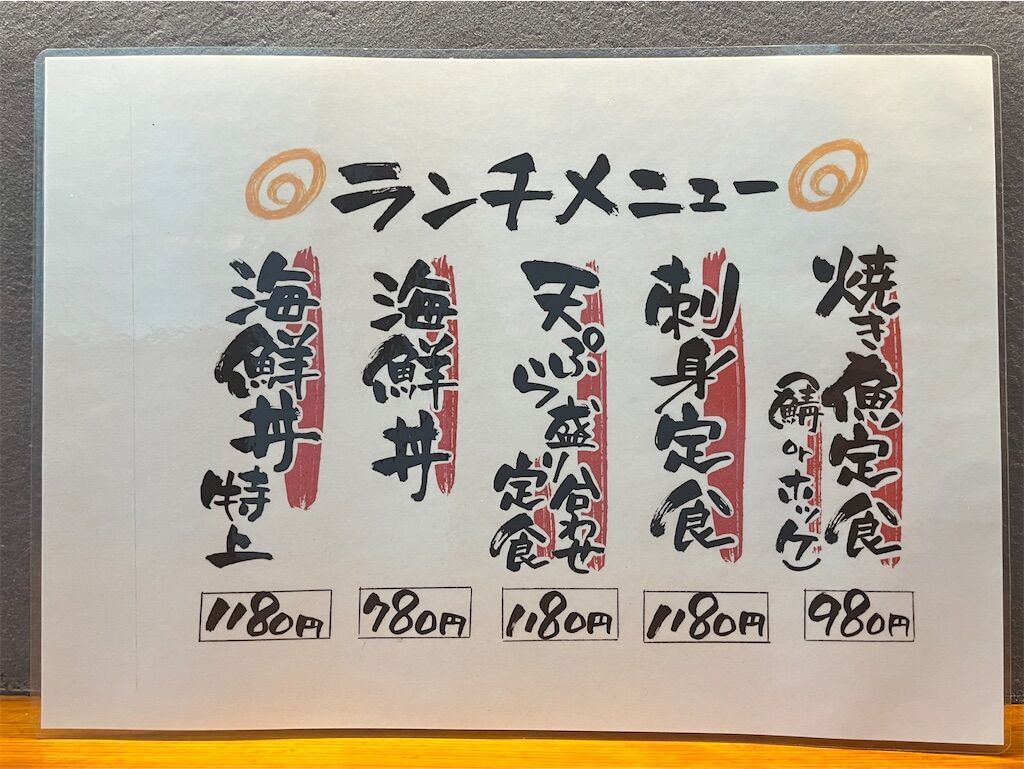 ランチメニュー
焼き魚定食
(鯖orホッケ)
980円
刺身定食
1180円
天ぷら盛り合わせ
定食
1180円
海鮮丼
780円
海鮮丼
特上
1180円